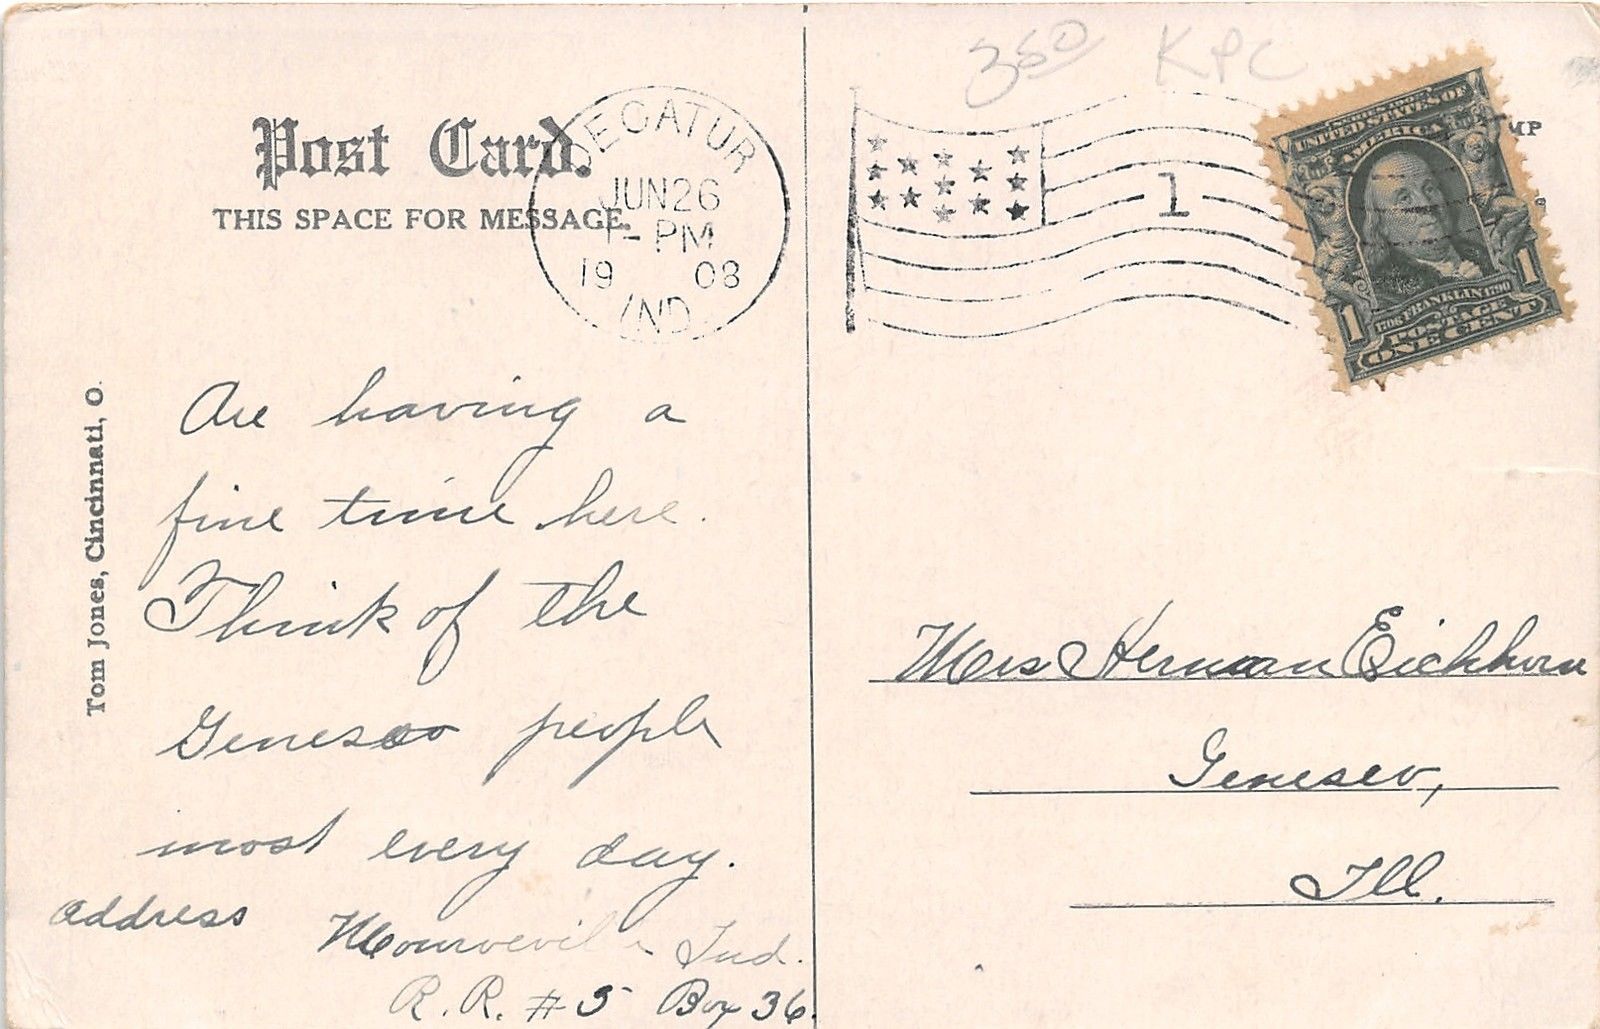 Post Card.
THIS SPACE FOR MESSAGE.
DECATUR
JUN 26
1 - PM
19 08
IND.
1
350 KPC
MP
SERIES 1902
UNITED STATES OF
AMERICA
1706 FRANKLIN 1790
POSTAGE
1 1
ONE CENT
Tom Jones, Cincinnati, O.
Are having a
fine time here.
Think of the
Geneseo people
most every day.
address
Monroeville Ind.
R. R. # 5 Box 36.
Mrs Herman Eichhorn
Geneseo,
Ill.